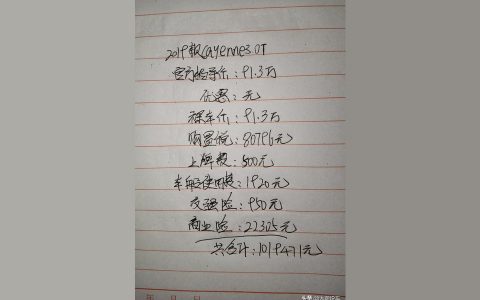 2019款Cayenne3.0T
官方指导价：91.3万
优惠：无
裸车价：91.3万
购置税：80796元
上牌费：500元
车船使用费：1920元
交强险：950元
商业险：22305元
共合计：1019471元
年 月 日